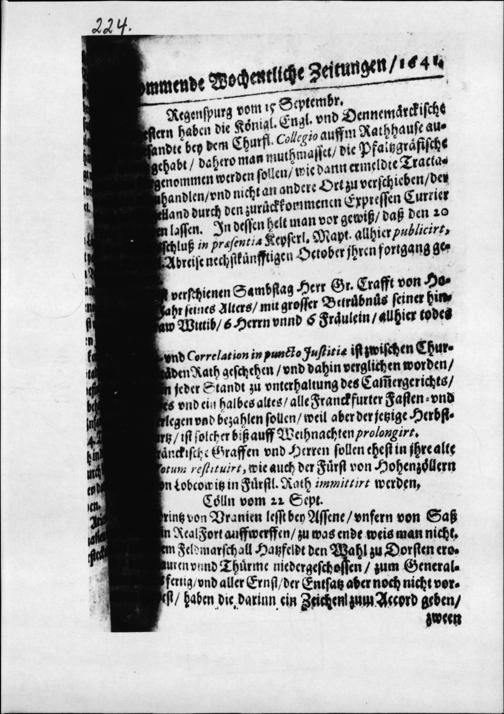 224.
ommende Wochentliche Zeitungen/1641.
Regenspurg vom 15 Septembr.
estern haben die Königl. Engl. vnd Dennemärckische
sandte bey dem Churfl. Collegio auffm Rathhause au-
gehabt / dahero man muthmasset / die Pfaltzgräfische
genommen werden sollen / wie dann ermeldte Tracta-
handlen/vnd nicht an andere Ort zu verschieben/der
elland durch den zurückkommenen Expressen Currier
en lassen. In dessen helt man vor gewiß/ daß den 20
schluß in præsentia Keyserl. Mayt. allhier publicirt,
Abreise nechstkünfftigen October jhren fortgang ge-
verschienen Sambstag Herr Gr. Crafft von Ho-
Jahr seines Alters/ mit grosser Betrübnüs seiner hin-
aw Wittib/ 6 Herrn vnnd 6 Fräulein / allhier todes
-vnd Correlation in puncto Justitiæ ist zwischen Chur-
täden Rath geschehen / vnd dahin verglichen worden/
n jeder Standt zu vnterhaltung des Cam̃ergerichts/
es vnd ein halbes altes/ alle Franckfurter Fasten- vnd
rlegen vnd bezahlen sollen/ weil aber der jetzige Herbst-
rtz/ ist solcher biß auff Weihnachten prolongirt.
ränckische Graffen vnd Herren sollen ehest in jhre alte
otum restituirt, wie auch der Fürst von Hohenzöllern
on Lobcowitz in Fürstl. Rath immittirt werden,
Cölln vom 22 Sept.
Printz von Vranien lesst bey Assene/ vnfern von Saß
in Real Fort auffwerffen/ zu was ende weis man nicht.
em Feldmarschall Hatzfeldt den Wahl zu Dorsten ero-
auren vnnd Thürme niedergeschossen / zum General-
fertig/vnd aller Ernst/der Entsatz aber noch nicht vor-
est/ haben die darinn ein Zeichen zum Accord geben/
zween